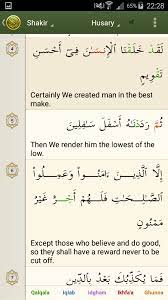 22:28
Shakir
Husary
4
لَقَدْ خَلَقْنَا ٱلْإِنسَـٰنَ فِىٓ أَحْسَنِ
تَقْوِيمٍ
Certainly We created man in the best
make.
5
ثُمَّ رَدَدْنَـٰهُ أَسْفَلَ سَـٰفِلِينَ
Then We render him the lowest of the
low.
6
إِلَّا ٱلَّذِينَ ءَامَنُوا۟ وَعَمِلُوا۟
ٱلصَّـٰلِحَـٰتِ فَلَهُمْ أَجْرٌ غَيْرُ
مَمْنُونٍ
Except those who believe and do good,
so they shall have a reward never to
be cut off.
فَمَا يُكَذِّبُكَ بَعْدُ بِٱلدِّينِ
Qalqala Iqlab Idgham Ikhfa'a Ghunna